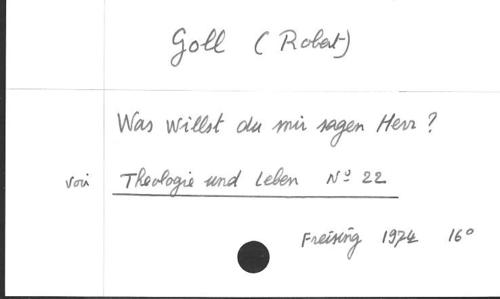 Goll (Robert)
Was willst du mir sagen Herr?
voir Theologie und Leben Nº 22
Freising 1974 16º